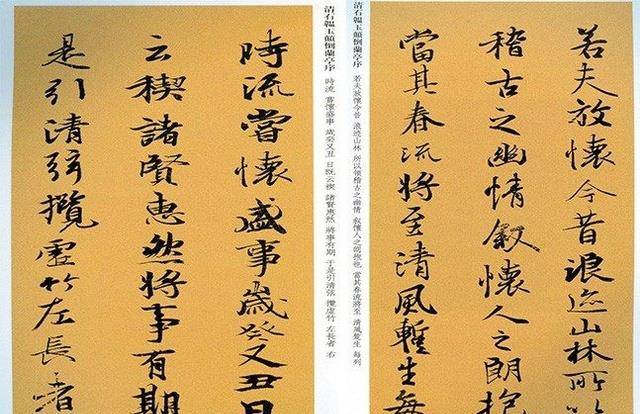 若夫放懷今昔浪迹山林所
稽古之幽情叙懷人之朗抱
當其春流將至清風暫生每
清石韞玉顛倒蘭亭序 若夫放懷今昔 浪迹山林 所以領稽古之幽情 叙懷人之朗抱也 當其春流將至 清風暫生 每列
清石韞玉顛倒蘭亭序 時流 嘗懷盛事 歲癸又丑 日既云稧 諸賢惠然 將事有期 于是引清弦 攬虛竹 左長者 右
時流嘗懷盛事歲癸又丑日
云稧諸賢惠然將事有期
是引清弦攬虛竹左長者